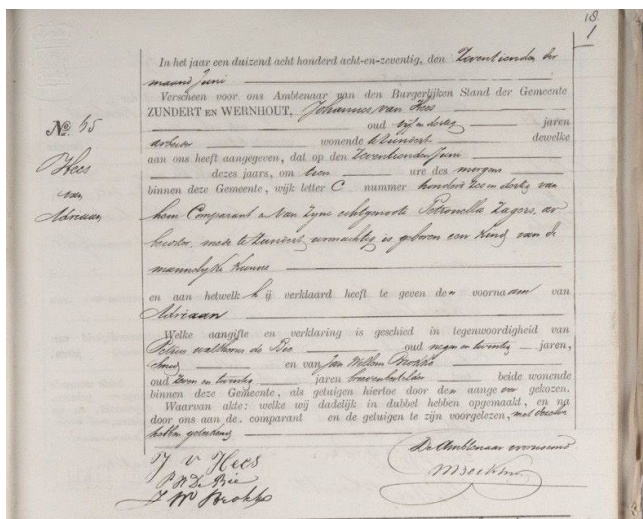 18.
1
In het jaar een duizend acht honderd acht-en-zeventig, den Zeventienden der
maand Juni
Verscheen voor ons Ambtenaar van den Burgerlijken Stand der Gemeente
ZUNDERT EN WERNHOUT, Johannes van Hees
oud vijf en dertig jaren
arbeider wonende te Zundert dewelke
aan ons heeft aangegeven, dat op den Zeventienden Juni
dezes jaars, om tien ure des morgens
binnen deze Gemeente, wijk letter C nummer honderd zes en dertig van
hem Comparant en van zyne echtgenoote Petronella Zagers, ar
beidster, mede te Zundert woonachtig is geboren een Kind van de
mannelyke Kunne
en aan hetwelk hij verklaard heeft te geven den voornaam van
Adriaan
Welke aangifte en verklaring is geschied in tegenwoordigheid van
Petrus de Bie oud negen en twintig jaren,
en van Jan Willem Brokke
oud Zeven en twintig jaren brievenbesteller beide wonende
binnen deze Gemeente, als getuigen hiertoe door den aangever gekozen.
Waarvan akte: welke wij dadelijk in dubbel hebben opgemaakt, en na
door ons aan de comparant en de getuigen te zijn voorgelezen, met dezelve
hebben geteekend
No. 55
Hees
van
Adriaan
J v Hees
P W De Bie
J W Brokke
De Ambtenaar voornoemd